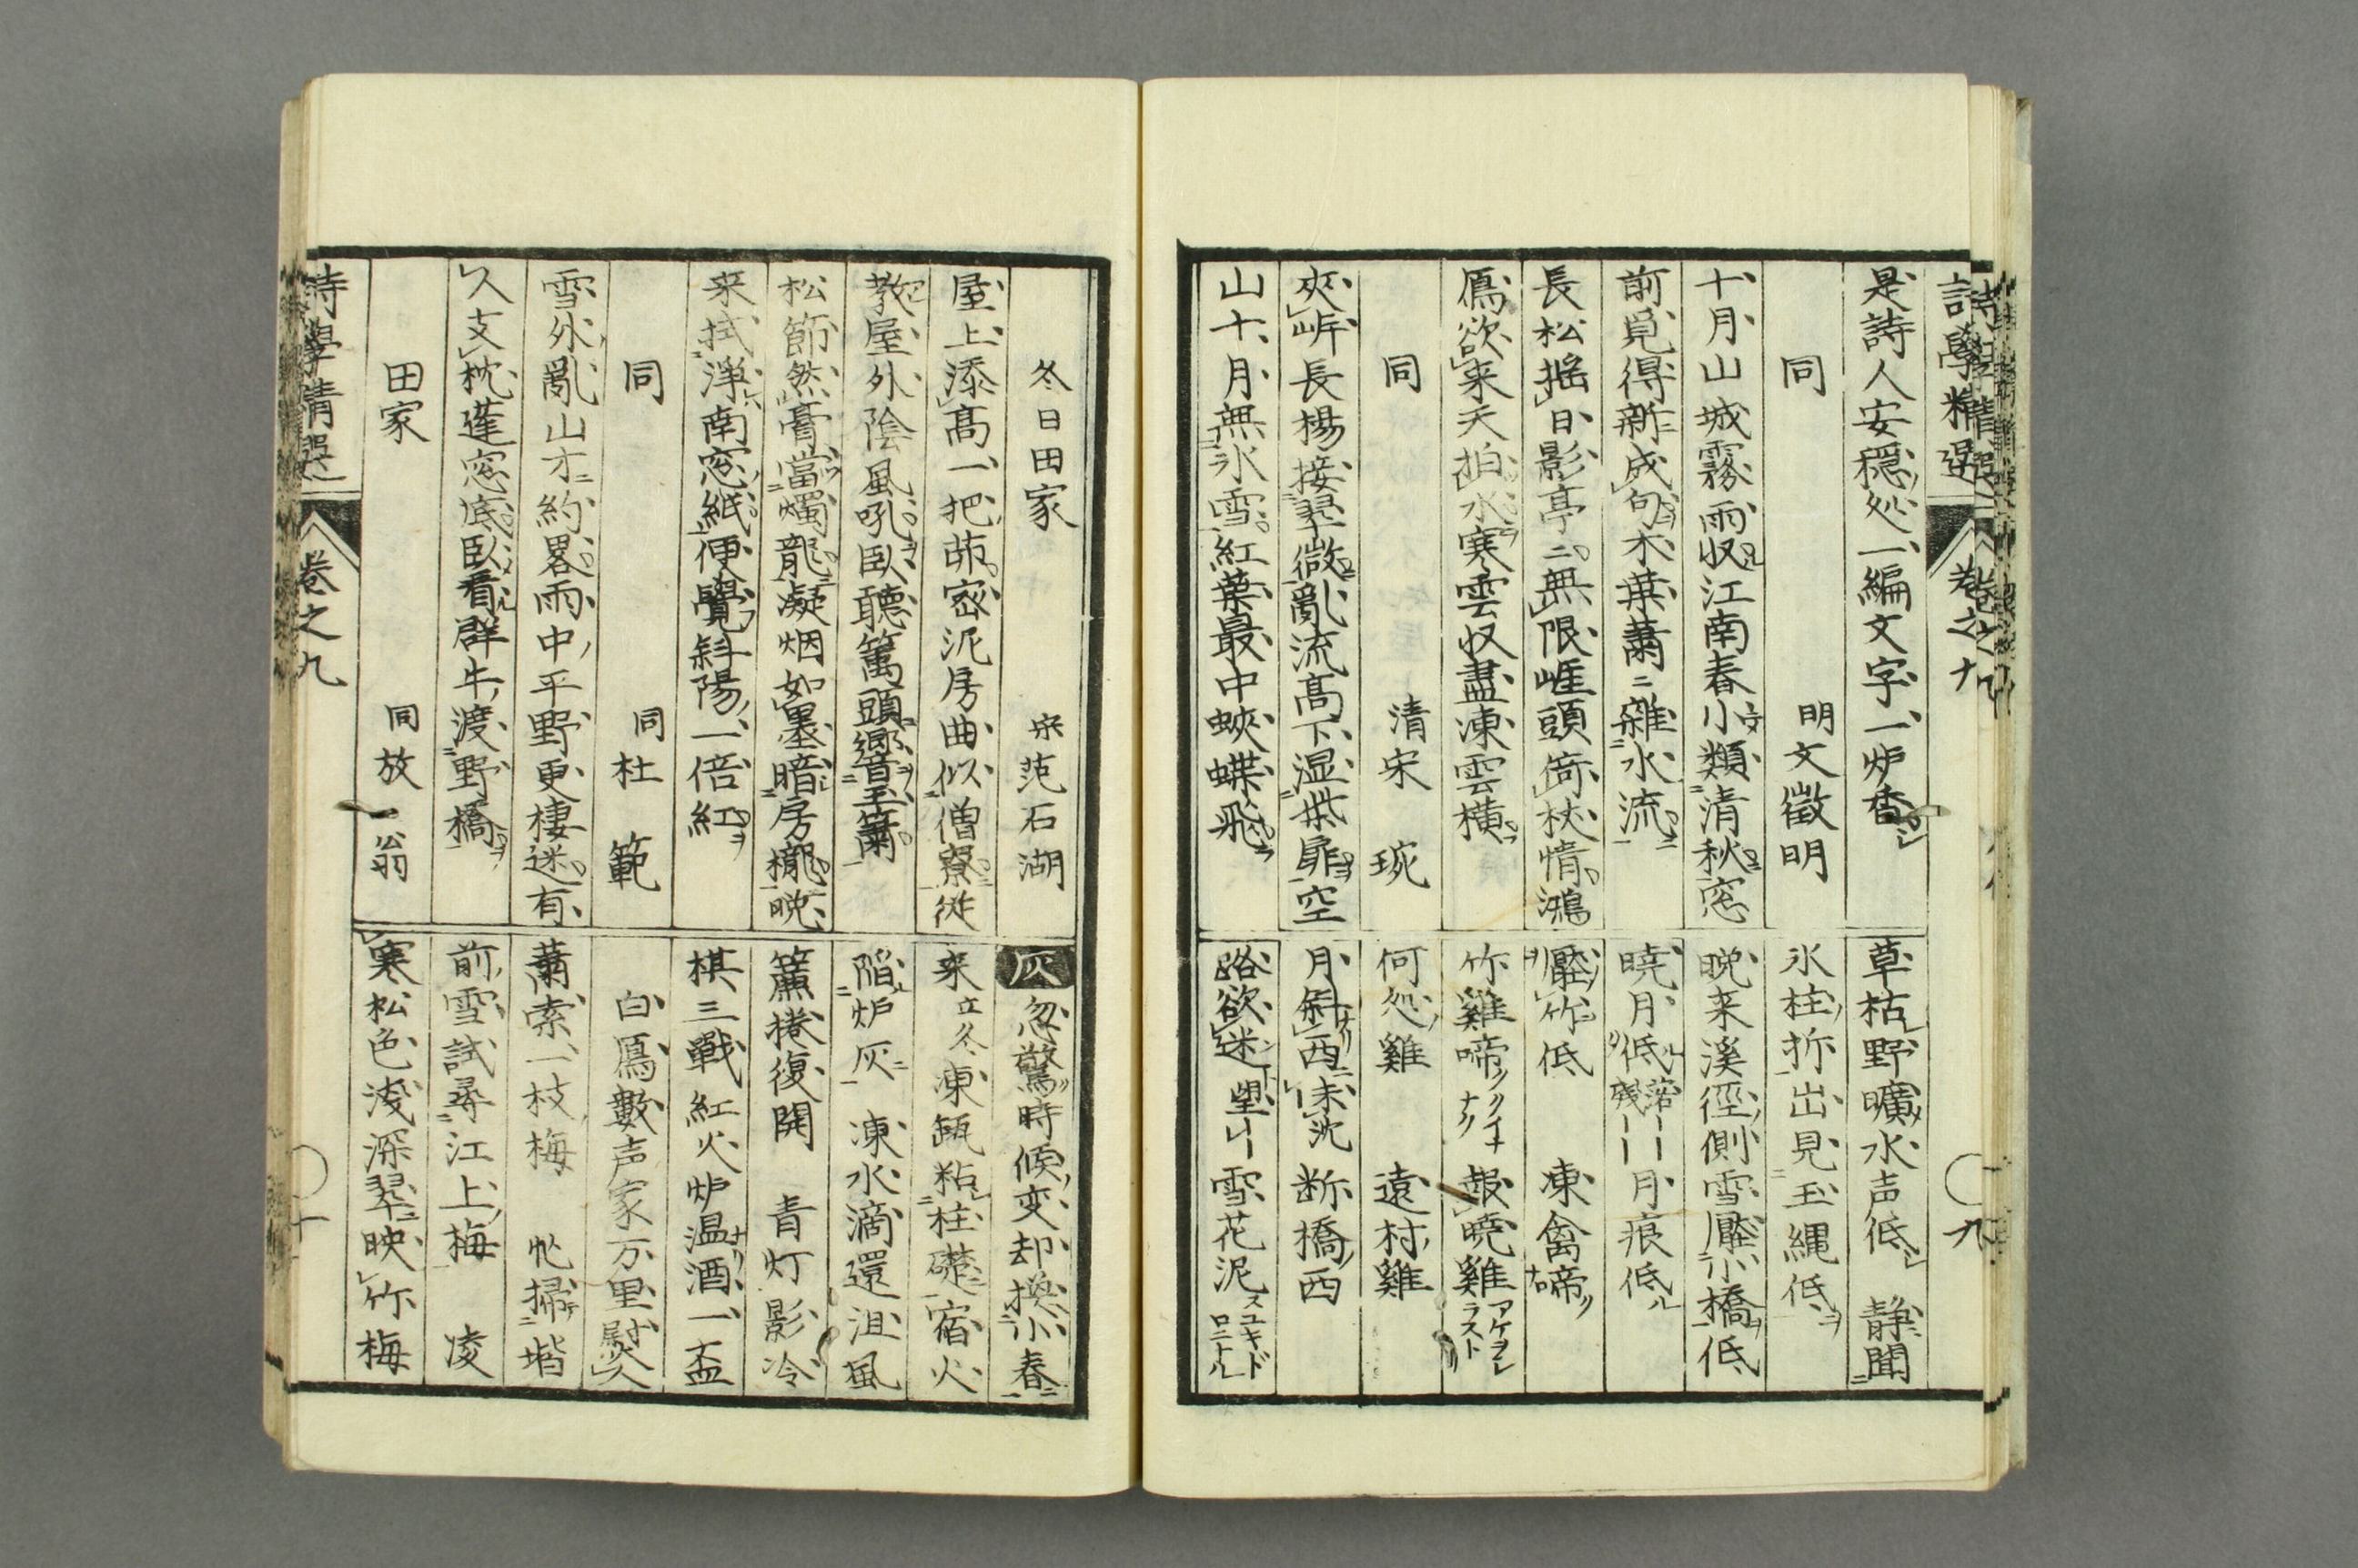 詩學精選
卷之九
九
是詩人安穩処一編文字一炉香
同 明文徵明
十月山城霧雨収江南春小類清秋窓
前覓得新成句木葉蕭ニ雜水流
長松揺日影亭ニ無限崕頭倚杖情鴻
鳫欲来天拍水寒雲収盡凍雲橫
同 清宋琬
夾岍長楊接翠微亂流高下湿柴扉空
山十月無氷雪紅葉最中蛺蝶飛
草枯野曠水声低 静聞
氷柱折出見玉縄低
晩来溪徑側雪壓小橋低
曉月低 落｜｜ 残｜｜ 月痕低
壓竹低 凍禽啼
竹雞啼 報曉雞
何処雞 遠村雞
月斜西未沈 断橋西
路欲迷 望｜｜ 雪花泥
冬日田家 宋范石湖
屋上添高一把茆宻泥房曲似僧寮從
教屋外陰風吼臥聽篱頭響玉簫
松節然膏當燭龍凝烟如墨暗房櫳晩
来拭淨南窓紙便覺斜陽一倍紅
同 同杜範
雪外亂山才約畧雨中平野更棲迷有
人支枕蓬窓底臥看群牛渡野橋
田家 同放翁
灰 忽驚時候変却換小春
来 立冬 凍瓿粘柱礎宿火
陷炉灰 凍水滴還沮風
簾捲復開 青灯影冷
棋三戰紅火炉温酒一盃
白鳫數声家万里㷉人
蕭索一枝梅 忙掃堦
前雪試尋江上梅 凌
寒松色浅深翠映竹梅
詩學精選
卷之九
十